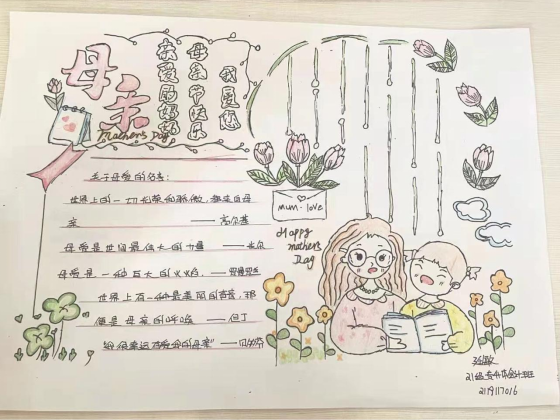 母亲
Mathers Day
亲爱的妈妈
母亲节快乐
我爱您
关于母爱的名言:
世界上的一切光荣和骄傲,都来自母
亲 ——高尔基
母爱是世间最伟大的力量 ——米尔
母爱是一种巨大的火焰。——罗曼罗兰
世界上有一种最美丽的声音,那
便是母亲的呼唤 ——但丁
——贝多芬
mum·love
Happy
mathers
Day
21级
2119117016